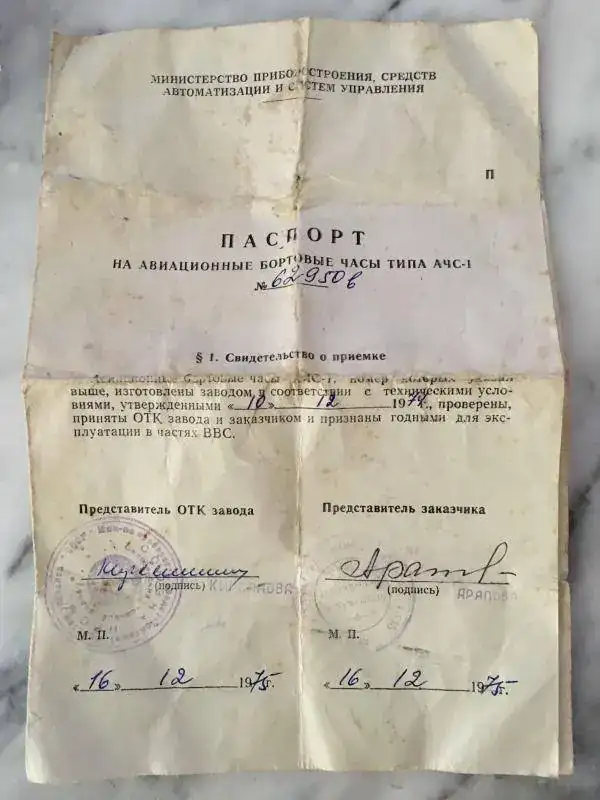 МИНИСТЕРСТВО ПРИБОРОСТРОЕНИЯ, СРЕДСТВ
АВТОМАТИЗАЦИИ И СИСТЕМ УПРАВЛЕНИЯ
П
ПАСПОРТ
НА АВИАЦИОННЫЕ БОРТОВЫЕ ЧАСЫ ТИПА АЧС-1
№ 62950в
§ 1. Свидетельство о приемке
бортовые часы АЧС-1, номер которых указан
выше, изготовлены заводом в соответствии с техническими усло-
виями, утвержденными «10» 12 1974г., проверены,
приняты ОТК завода и заказчиком и признаны годными для экс-
плуатации в частях ВВС.
Представитель ОТК завода Представитель заказчика
(подпись) (подпись) АРАПОВА
М. П. М. П.
«16» 12 1975г. «16» 12 1975г.